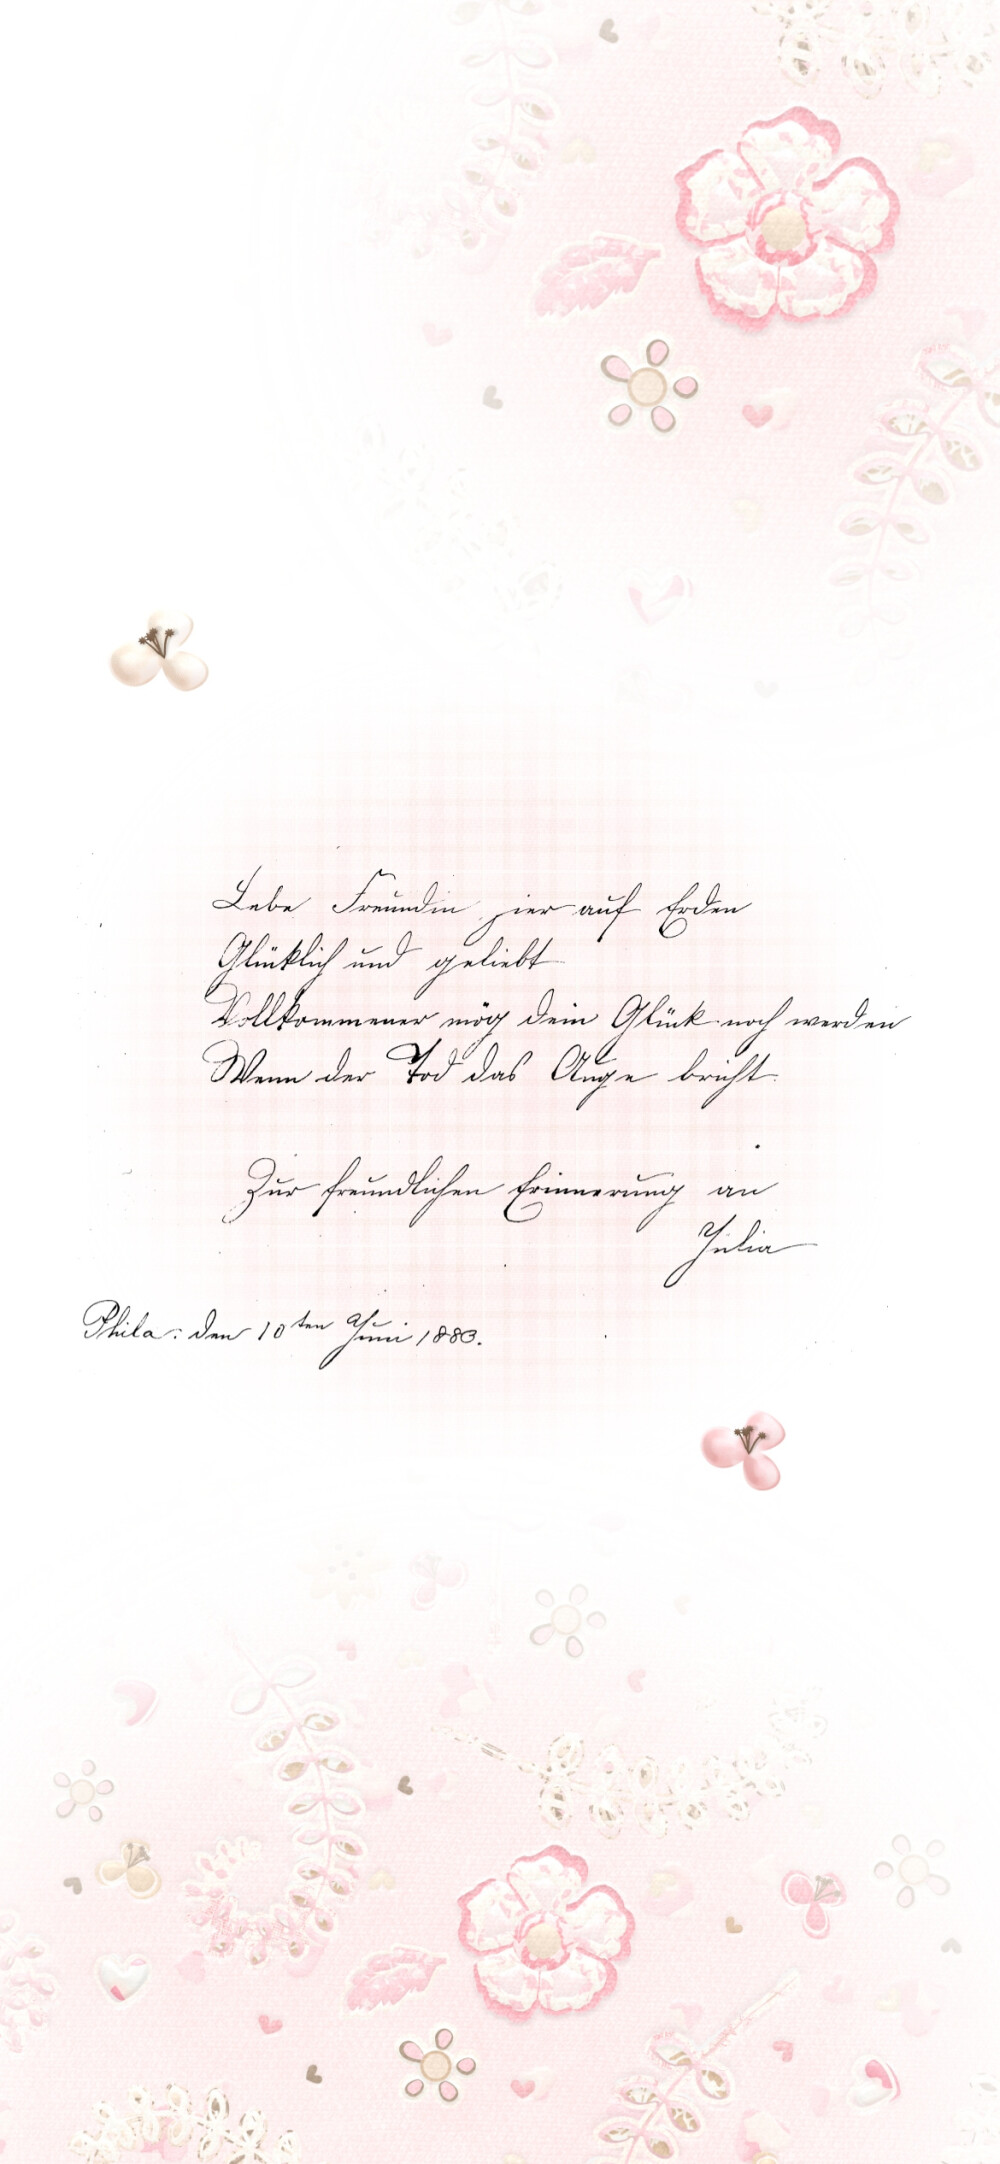 Lebe Freundin hier auf Erden
Glücklich und geliebt
Vollkommener mög dein Glück noch werden
Wenn der Tod das Auge bricht.
Zur freundlichen Erinnerung an
Julia
Phila: den 10ten Juni 1883.